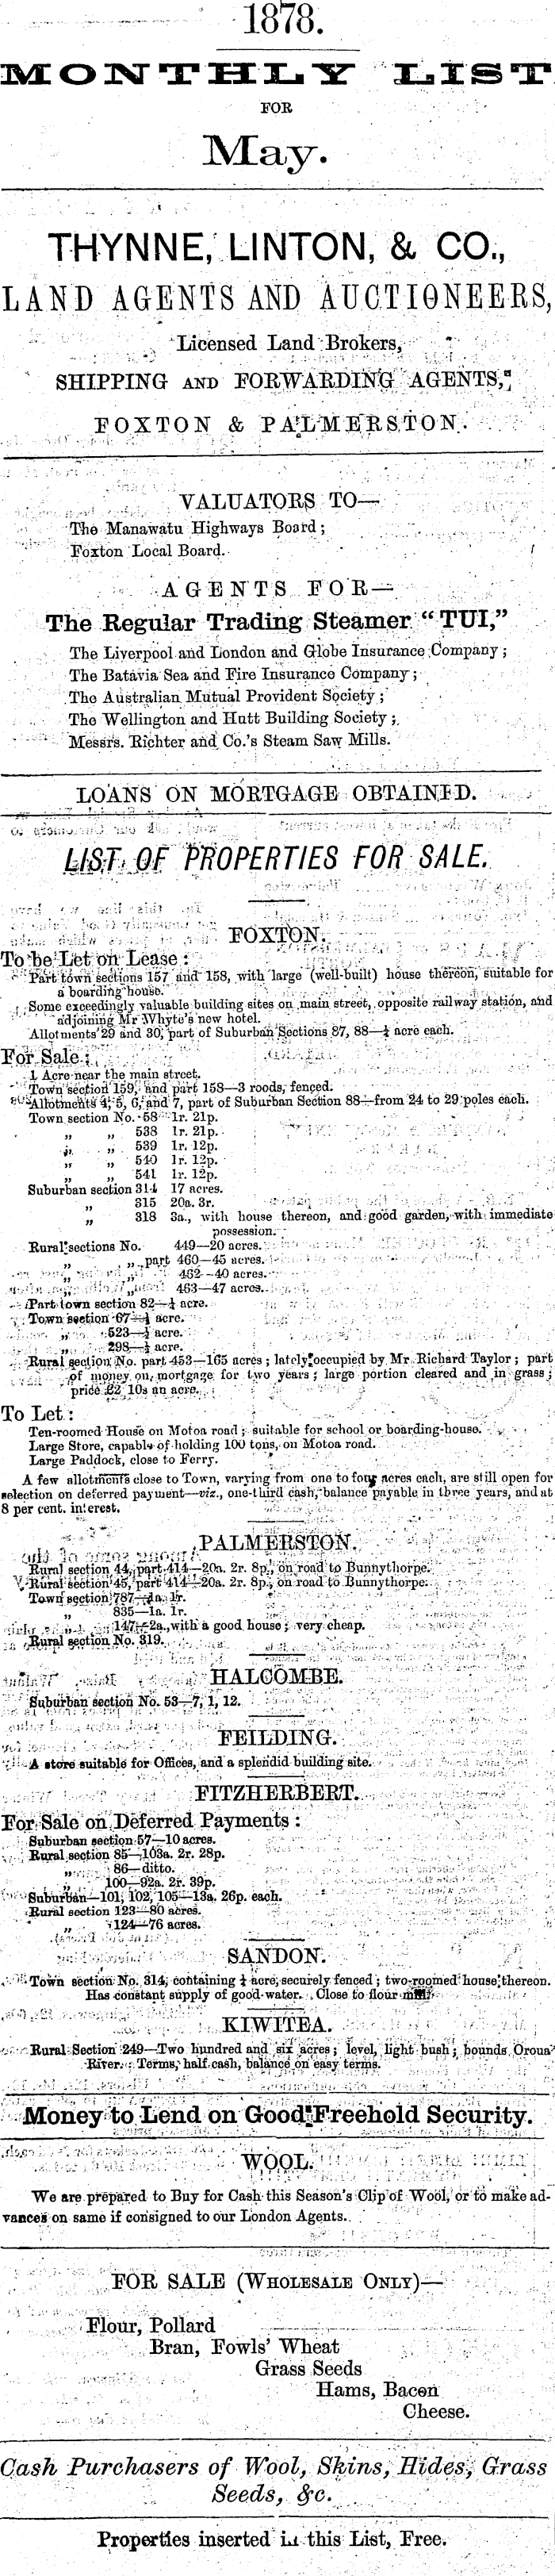 1878.
MONTHLY LIST
FOR
May.
THYNNE, LINTON, & CO.,
LAND AGENTS AND AUCTIONEERS,
Licensed Land Brokers,
SHIPPING AND FORWARDING AGENTS,
FOXTON & PALMERSTON.
VALUATORS TO—
The Manawatu Highways Board;
Foxton Local Board.
AGENTS FOR—
The Regular Trading Steamer "TUI,"
The Liverpool and London and Globe Insurance Company;
The Batavia Sea and Fire Insurance Company;
The Australian Mutual Provident Society;
The Wellington and Hutt Building Society;
Messrs. Richter and Co.'s Steam Saw Mills.
LOANS ON MORTGAGE OBTAINED.
LIST OF PROPERTIES FOR SALE.
FOXTON.
To be Let on Lease:
Part town sections 157 and 158, with large (well-built) house thereon, suitable for
a boarding house.
Some exceedingly valuable building sites on main street, opposite railway station, and
adjoining Mr Whyte's new hotel.
Allotments 29 and 30, part of Suburban Sections 87, 88—¼ acre each.
For Sale:
1 Acre near the main street.
Town section 159, and part 158—3 roods, fenced.
Allotments 4, 5, 6, and 7, part of Suburban Section 88—from 24 to 29 poles each.
Town section No. 58 1r. 21p.
„ „ 538 1r. 21p.
„ „ 539 1r. 12p.
„ „ 540 1r. 12p.
„ „ 541 1r. 12p.
Suburban section 314 17 acres.
„ 315 20a. 3r.
„ 318 3a., with house thereon, and good garden, with immediate
possession.
Rural sections No. 449—20 acres.
„ „ part 460—45 acres.
„ „ 462—40 acres.
„ „ 463—47 acres.
Part town section 82—¼ acre.
Town section 67—¼ acre.
„ 523—¼ acre.
„ 298—¼ acre.
Rural section No. part 453—165 acres; lately occupied by Mr Richard Taylor; part
of money on mortgage for two years; large portion cleared and in grass;
price £2 10s an acre.
To Let:
Ten-roomed House on Motoa road; suitable for school or boarding-house.
Large Store, capable of holding 100 tons, on Motoa road.
Large Paddock, close to Ferry.
A few allotments close to Town, varying from one to four acres each, are still open for
selection on deferred payment—viz., one-third cash, balance payable in three years, and at
8 per cent. interest.
PALMERSTON.
Rural section 44, part 414—20a. 2r. 8p., on road to Bunnythorpe.
Rural section 45, part 414—20a. 2r. 8p., on road to Bunnythorpe.
Town section 787—1a. 1r.
„ 835—1a. 1r.
„ 147—2a., with a good house; very cheap.
Rural section No. 319.
HALCOMBE.
Suburban section No. 53—7, 1, 12.
FEILDING.
A store suitable for Offices, and a splendid building site.
FITZHERBERT.
For Sale on Deferred Payments:
Suburban section 57—10 acres.
Rural section 85—103a. 2r. 28p.
„ 86—ditto.
„ 100—92a. 2r. 39p.
Suburban—101, 102, 105—13a. 26p. each.
Rural section 123—80 acres.
„ 124—76 acres.
SANDON.
Town section No. 314, containing ¼ acre, securely fenced; two-roomed house thereon.
Has constant supply of good water. Close to flour mill.
KIWITEA.
Rural Section 249—Two hundred and six acres; level, light bush; bounds Oroua
River. Terms, half cash, balance on easy terms.
Money to Lend on Good Freehold Security.
WOOL.
We are prepared to Buy for Cash this Season's Clip of Wool, or to make ad-
vances on same if consigned to our London Agents.
FOR SALE (WHOLESALE ONLY)—
Flour, Pollard
Bran, Fowls' Wheat
Grass Seeds
Hams, Bacon
Cheese.
Cash Purchasers of Wool, Skins, Hides, Grass
Seeds, &c.
Properties inserted in this List, Free.